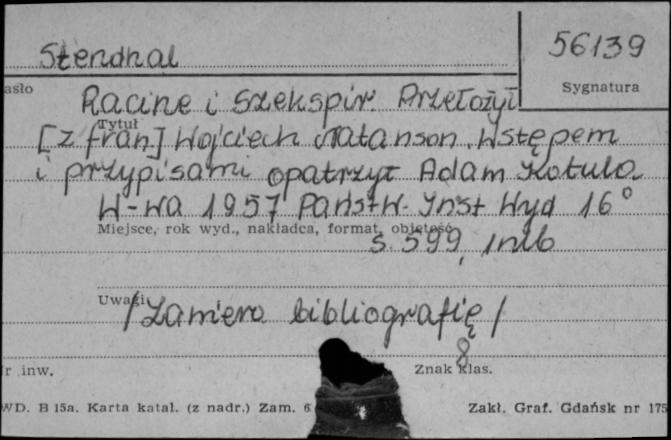 Stendhal
56139
asło
Sygnatura
Racine i Szekspir. Przełożył
Tytuł
[z fran] Wojciech Natanson. Wstępem
i przypisami opatrzył Adam Kotula
W-wa 1957 Państw. Inst Wyd 16°
Miejsce, rok wyd., nakładca, format, objętość
s. 599, 1 nlb
Uwagi
/Zawiera bibliografię/
8
r inw.
Znak klas.
WD. B 15a. Karta katal. (z nadr.) Zam. 6
Zakł. Graf. Gdańsk nr 175